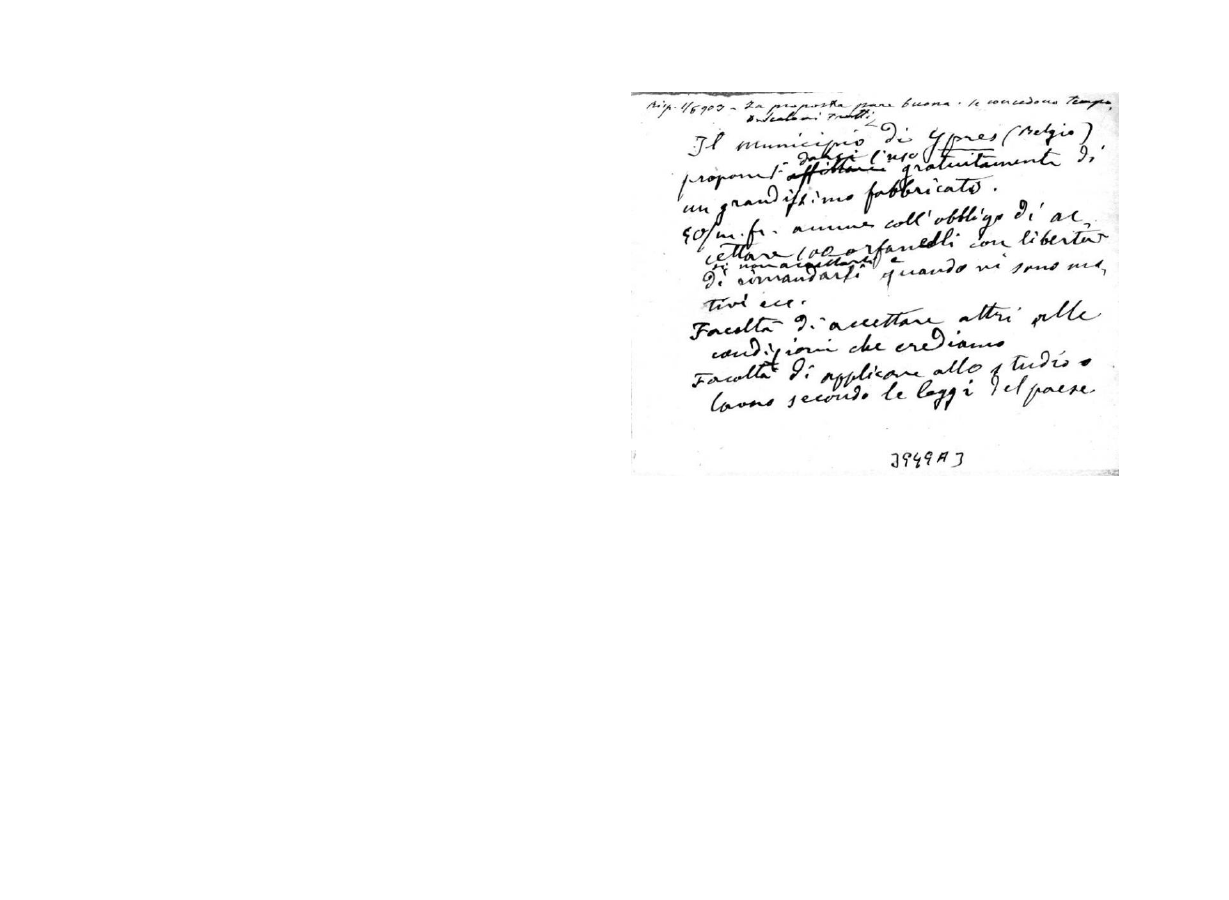 Risp. 1/5 903 - La proposta pare buona. Se concedono tempo,
Il Municipio di Ypres (Belgio)
darci l'uso
propone affittarci gratuitamente di
un grandissimo fabbricato.
50/m. fr. annue coll'obbligo di ac-
cettare 100 orfanelli con libertà
di non accettarli e
di rimandarli quando vi sono mo-
tivi ecc.
Facoltà di accettare altri alle
condizioni che crediamo
Facoltà di applicare allo studio o
lavoro secondo le leggi del paese
3949A3